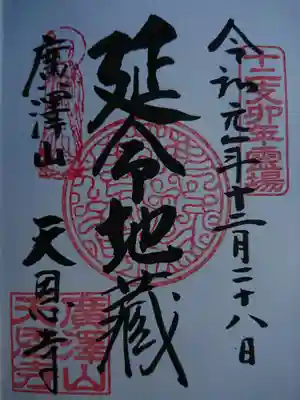 十二支卯年霊場
令和元年十二月二十八日
延命地蔵
廣澤山
天恩寺
廣澤山
天恩寺